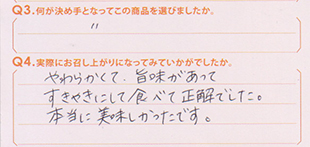 Q3.何が決め手となってこの商品を選びましたか。
〃
Q4.実際にお召し上がりになってみていかがでしたか。
やわらかくて、旨味があって
すきやきにして食べて正解でした。
本当に美味しかったです。